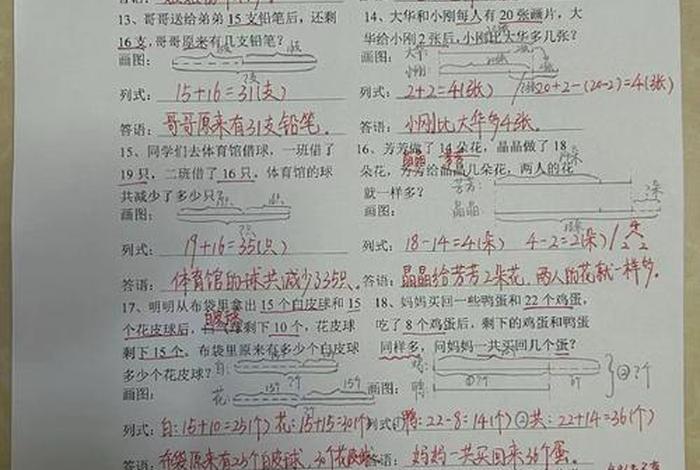 13、哥哥送给弟弟 15 支铅笔后，还剩
16支，哥哥原来有几支铅笔？
画图：
列式：15+16=31(支)
答语：哥哥原来有31支铅笔。
14、大华和小刚每人有 20 张画片，大
华给小刚 2 张后，小刚比大华多几张？
画图：
大华
小刚
列式：2+2=4(张) 20+2-(20-2)=4(张)
答语：小刚比大华多4张。
15、同学们去体育馆借球，一班借了
19 只，二班借了 16 只。体育馆的球
共减少了多少只？
画图：
列式：19+16=35(只)
答语：体育馆的球共减少了35只。
16、芳芳做了 14 朵花，晶晶做了 18
晶晶 芳芳
朵花，芳芳给晶晶几朵花，两人的花
就一样多？
画图：
芳芳：
晶晶：
列式：18-14=4(朵) 4-2=2(朵)
答语：晶晶给芳芳2朵花，两人的花就一样多。
17、明明从布袋里拿出 15 个白皮球和 15
个花皮球后，
白皮球
剩下 10 个，花皮球
剩下 15 个。布袋里原来有多少个白皮球
多少个花皮球？
画图：
白：
花：
列式：白：15+10=25(个) 花：15+15=30(个)
答语：布袋原来有25个白皮球，30个花皮球
18、妈妈买回一些鸭蛋和 22 个鸡蛋，
吃了 8 个鸡蛋后，剩下的鸡蛋和鸭蛋
同样多，问妈妈一共买回几个蛋？
画图：
鸡：
鸭：
列式：①鸭：22-8=14(个) ②共：22+14=36(个)
答语：妈妈一共买回来36个蛋。